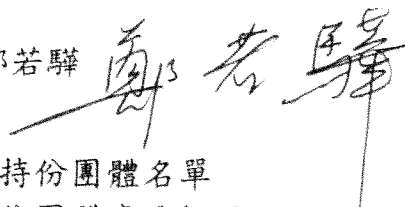 若驊 鄭若驊
持份團體名單